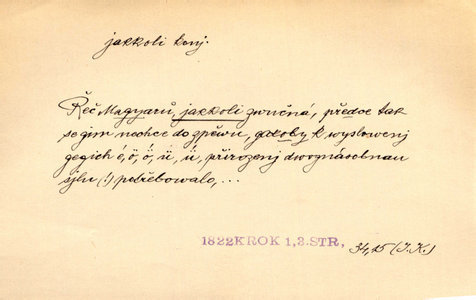 jakkoli konj.
Řeč Magyarů, jakkoli zwučná, předce tak
se gim nechce do zpěwu, gakoby k wyslowenj
gegich é, ö, ő, ü, ű, přirozenj dwognásobnau
sylu (!) potřebowalo,...
1822 KROK 1,3. STR, 34,15 (J.K.)